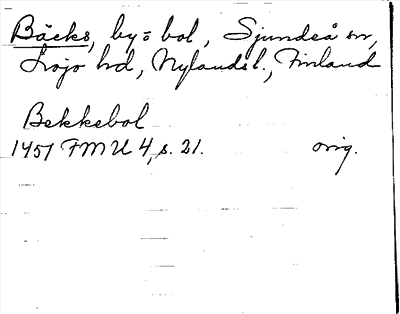 Bäcks, by = bol, Sjundeå sn,
Lojo hd, Nylands l., Finland
Bekkebol
1451 FMU 4, s. 21. orig.